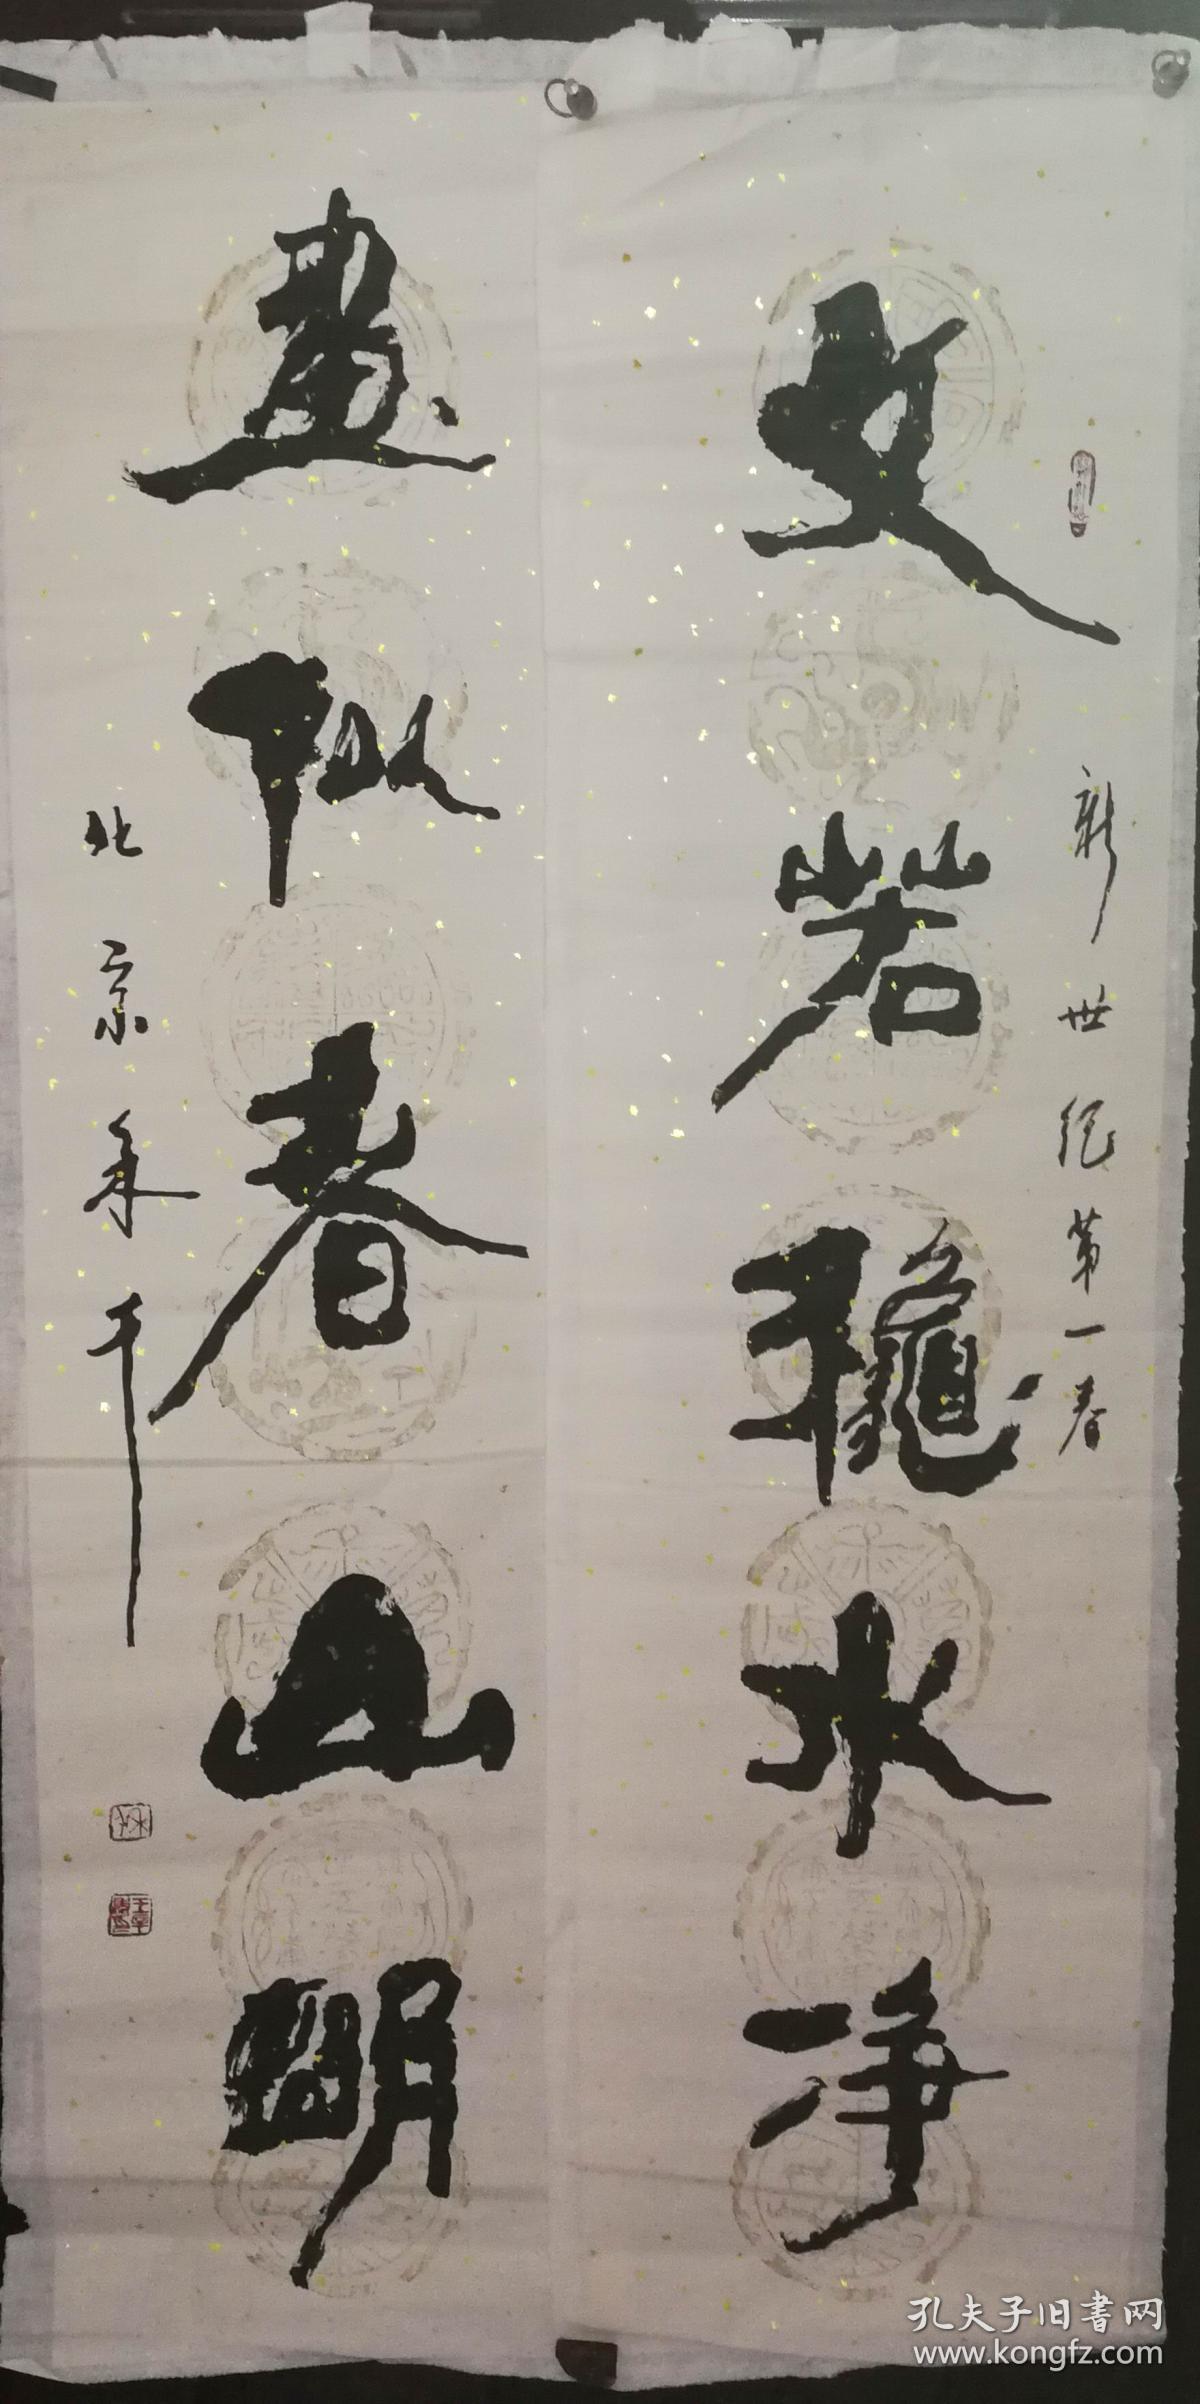 文若龝水净
新世纪第一春
画似春山明
北京禾千
孔夫子旧书网
www.kongfz.com